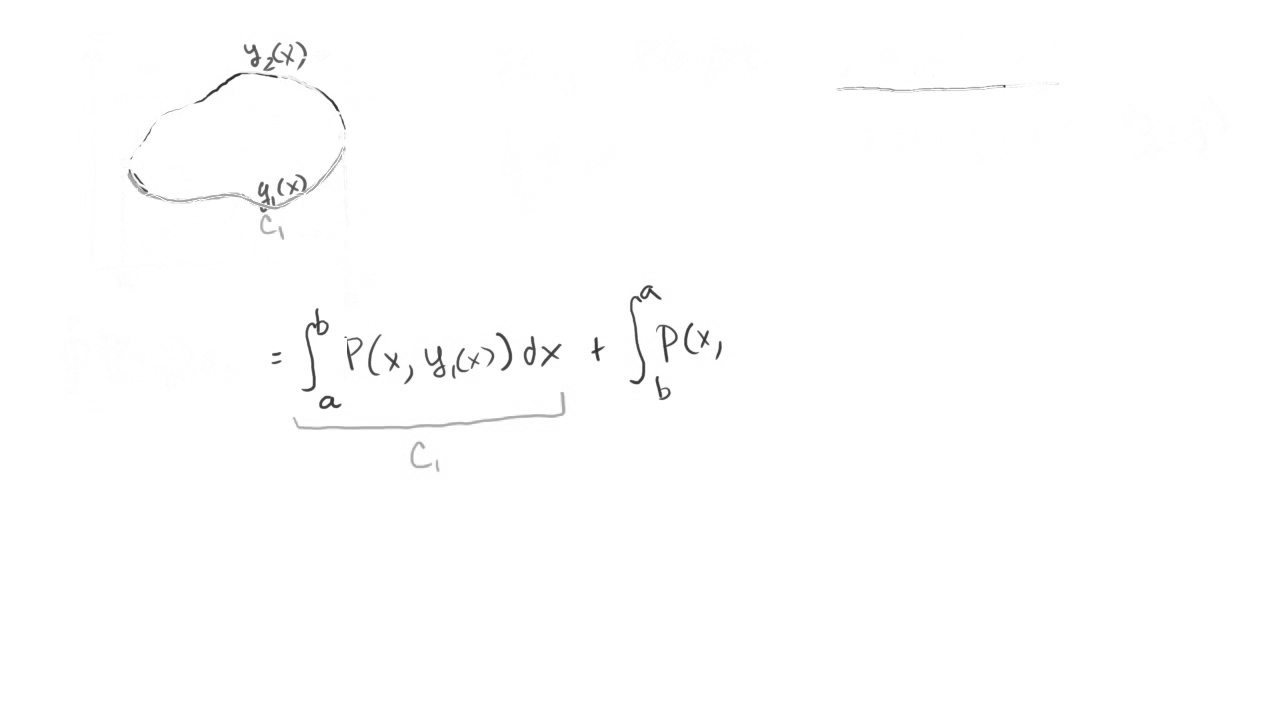 y₂(x)
y₁(x)
C₁
= ∫ₐᵇ P(x, y₁(x)) dx + ∫_b^a P(x,
C₁